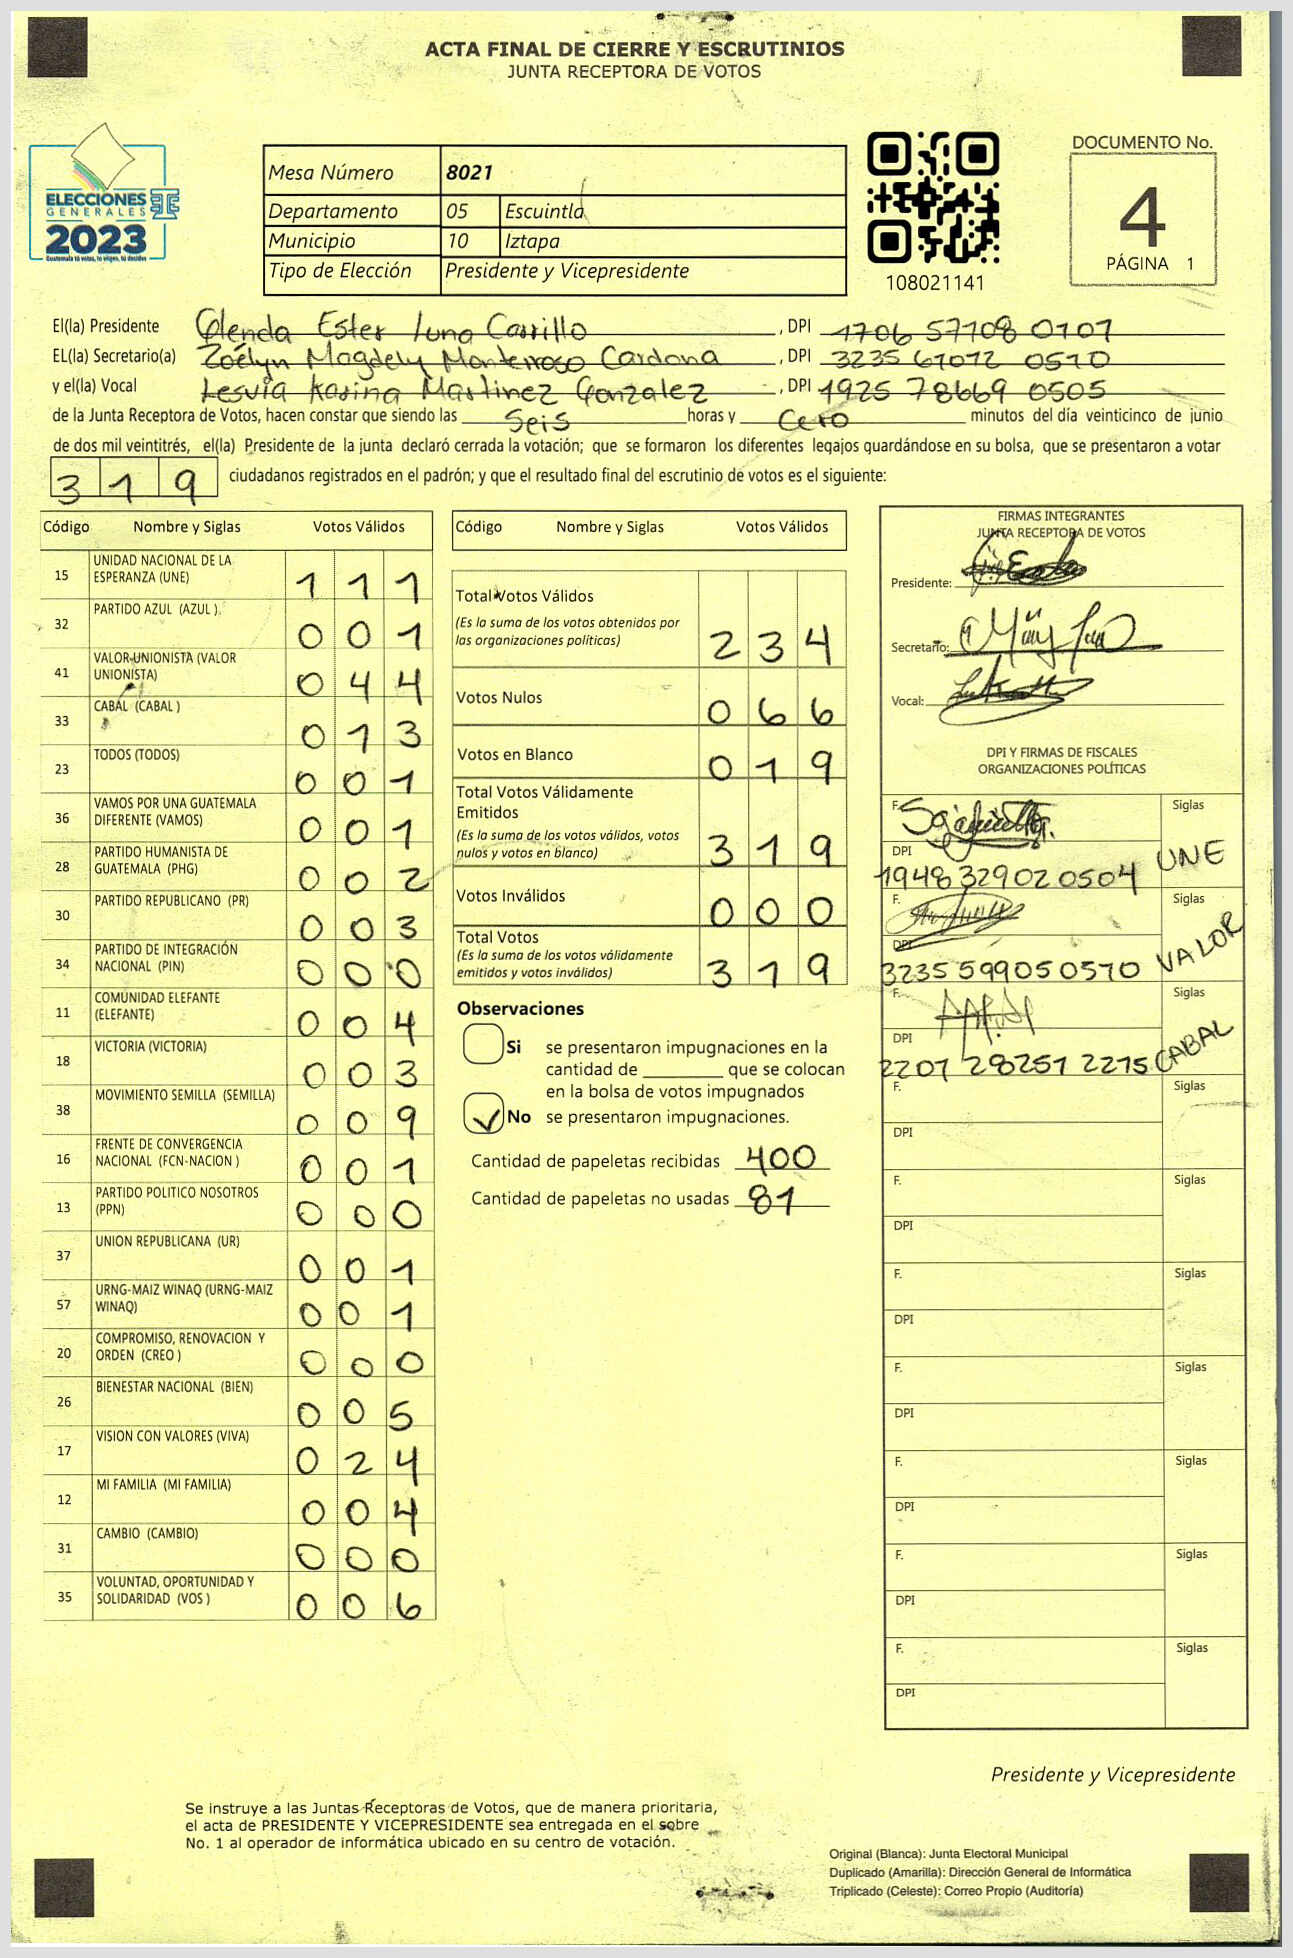 ACTA FINAL DE CIERRE Y ESCRUTINIOS
JUNTA RECEPTORA DE VOTOS
ELECCIONES
GENERALES
2023
Guatemala tú votas, tú eliges, tú decides
Mesa Número 8021
Departamento 05 Escuintla
Municipio 10 Iztapa
Tipo de Elección Presidente y Vicepresidente
108021141
DOCUMENTO No.
4
PÁGINA 1
El(la) Presidente Glenda Ester Luna Carrillo , DPI 1706 57708 0101
EL(la) Secretario(a) Zoélyn Magdely Monterroso Cardona , DPI 3235 61072 0510
y el(la) Vocal Lesvia Karina Martinez Gonzalez , DPI 1925 78669 0505
de la Junta Receptora de Votos, hacen constar que siendo las Seis horas y Cero minutos del día veinticinco de junio
de dos mil veintitrés, el(la) Presidente de la junta declaró cerrada la votación; que se formaron los diferentes legajos guardándose en su bolsa, que se presentaron a votar
319 ciudadanos registrados en el padrón; y que el resultado final del escrutinio de votos es el siguiente:
Código Nombre y Siglas Votos Válidos
15 UNIDAD NACIONAL DE LA ESPERANZA (UNE) 111
32 PARTIDO AZUL (AZUL ) 001
41 VALOR-UNIONISTA (VALOR UNIONISTA) 044
33 CABAL (CABAL ) 013
23 TODOS (TODOS) 001
36 VAMOS POR UNA GUATEMALA DIFERENTE (VAMOS) 001
28 PARTIDO HUMANISTA DE GUATEMALA (PHG) 002
30 PARTIDO REPUBLICANO (PR) 003
34 PARTIDO DE INTEGRACIÓN NACIONAL (PIN) 000
11 COMUNIDAD ELEFANTE (ELEFANTE) 004
18 VICTORIA (VICTORIA) 003
38 MOVIMIENTO SEMILLA (SEMILLA) 009
16 FRENTE DE CONVERGENCIA NACIONAL (FCN-NACION ) 001
13 PARTIDO POLITICO NOSOTROS (PPN) 000
37 UNION REPUBLICANA (UR) 001
57 URNG-MAIZ WINAQ (URNG-MAIZ WINAQ) 001
20 COMPROMISO, RENOVACION Y ORDEN (CREO ) 000
26 BIENESTAR NACIONAL (BIEN) 005
17 VISION CON VALORES (VIVA) 024
12 MI FAMILIA (MI FAMILIA) 004
31 CAMBIO (CAMBIO) 000
35 VOLUNTAD, OPORTUNIDAD Y SOLIDARIDAD (VOS ) 006
Código Nombre y Siglas Votos Válidos
Total Votos Válidos
(Es la suma de los votos obtenidos por
las organizaciones políticas) 234
Votos Nulos 066
Votos en Blanco 019
Total Votos Válidamente
Emitidos
(Es la suma de los votos válidos, votos
nulos y votos en blanco) 319
Votos Inválidos 000
Total Votos
(Es la suma de los votos válidamente
emitidos y votos inválidos) 319
Observaciones
Si se presentaron impugnaciones en la
cantidad de ________ que se colocan
en la bolsa de votos impugnados
No se presentaron impugnaciones.
Cantidad de papeletas recibidas 400
Cantidad de papeletas no usadas 81
FIRMAS INTEGRANTES
JUNTA RECEPTORA DE VOTOS
Presidente:
Secretario:
Vocal:
DPI Y FIRMAS DE FISCALES
ORGANIZACIONES POLÍTICAS
F. Siglas
DPI 1948 32902 0504 UNE
F. Siglas
DPI 3235 59905 0510 VALOR
F. Siglas
DPI 2207 28251 2215 CABAL
F. Siglas
DPI
F. Siglas
DPI
F. Siglas
DPI
F. Siglas
DPI
F. Siglas
DPI
F. Siglas
DPI
F. Siglas
DPI
Presidente y Vicepresidente
Se instruye a las Juntas Receptoras de Votos, que de manera prioritaria,
el acta de PRESIDENTE Y VICEPRESIDENTE sea entregada en el sobre
No. 1 al operador de informática ubicado en su centro de votación.
Original (Blanca): Junta Electoral Municipal
Duplicado (Amarilla): Dirección General de Informática
Triplicado (Celeste): Correo Propio (Auditoría)